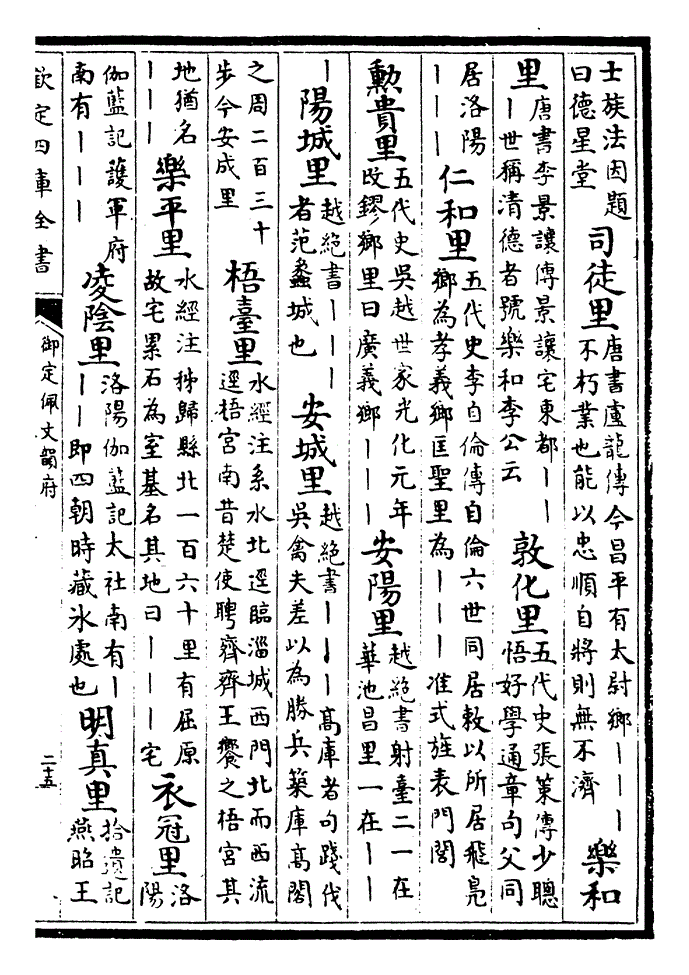 士族法因題
曰德星堂
司徒里
唐書盧龍傳今昌平有太尉鄉｜｜｜
不朽業也能以忠順自將則無不濟
樂和
里
唐書李景讓傳景讓宅東都｜｜
｜世稱清德者號樂和李公云
敦化里
五代史張策傳少聰
悟好學通章句父同
居洛陽
｜｜｜
仁和里
五代史李自倫傳自倫六世同居敕以所居飛鳧
鄉為孝義鄉匡聖里為｜｜｜准式旌表門閭
勲貴里
五代史吳越世家光化元年
改鏐鄉里曰廣義鄉｜｜｜
安陽里
越絶書射臺二一在
華池昌里一在｜｜
｜
陽城里
越絶書｜｜｜
者范蠡城也
安城里
越絶書｜｜｜高庫者句踐伐
吳禽夫差以為勝兵築庫高閣
之周二百三十
步今安成里
梧臺里
水經注系水北逕臨淄城西門北而西流
逕梧宮南昔楚使聘齊齊王饗之梧宮其
地猶名
｜｜｜
樂平里
水經注秭歸縣北一百六十里有屈原
故宅累石為室基名其地曰｜｜｜宅
衣冠里
洛
陽
伽藍記護軍府
南有｜｜｜
凌陰里
洛陽伽藍記太社南有｜
｜｜即四朝時藏氷處也
明真里
拾遺記
燕昭王
欽定四庫全書
御定佩文韻府
二十五